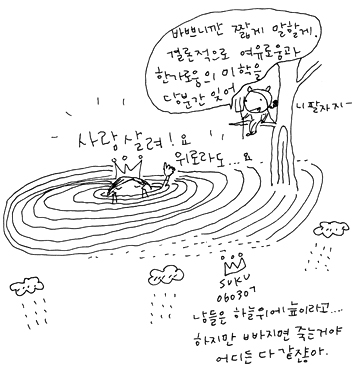 바쁘니깐 짧게 말할게.
결론적으로 여유로움과
한가로움의 미학을
당분간 잊어
니팔자지-
사람살려! 요
위로라도...요
SUKU
060307
남들은 하늘위에 늪이라고...
하지만 빠지면 죽는거야
어디든 다 같잖아.